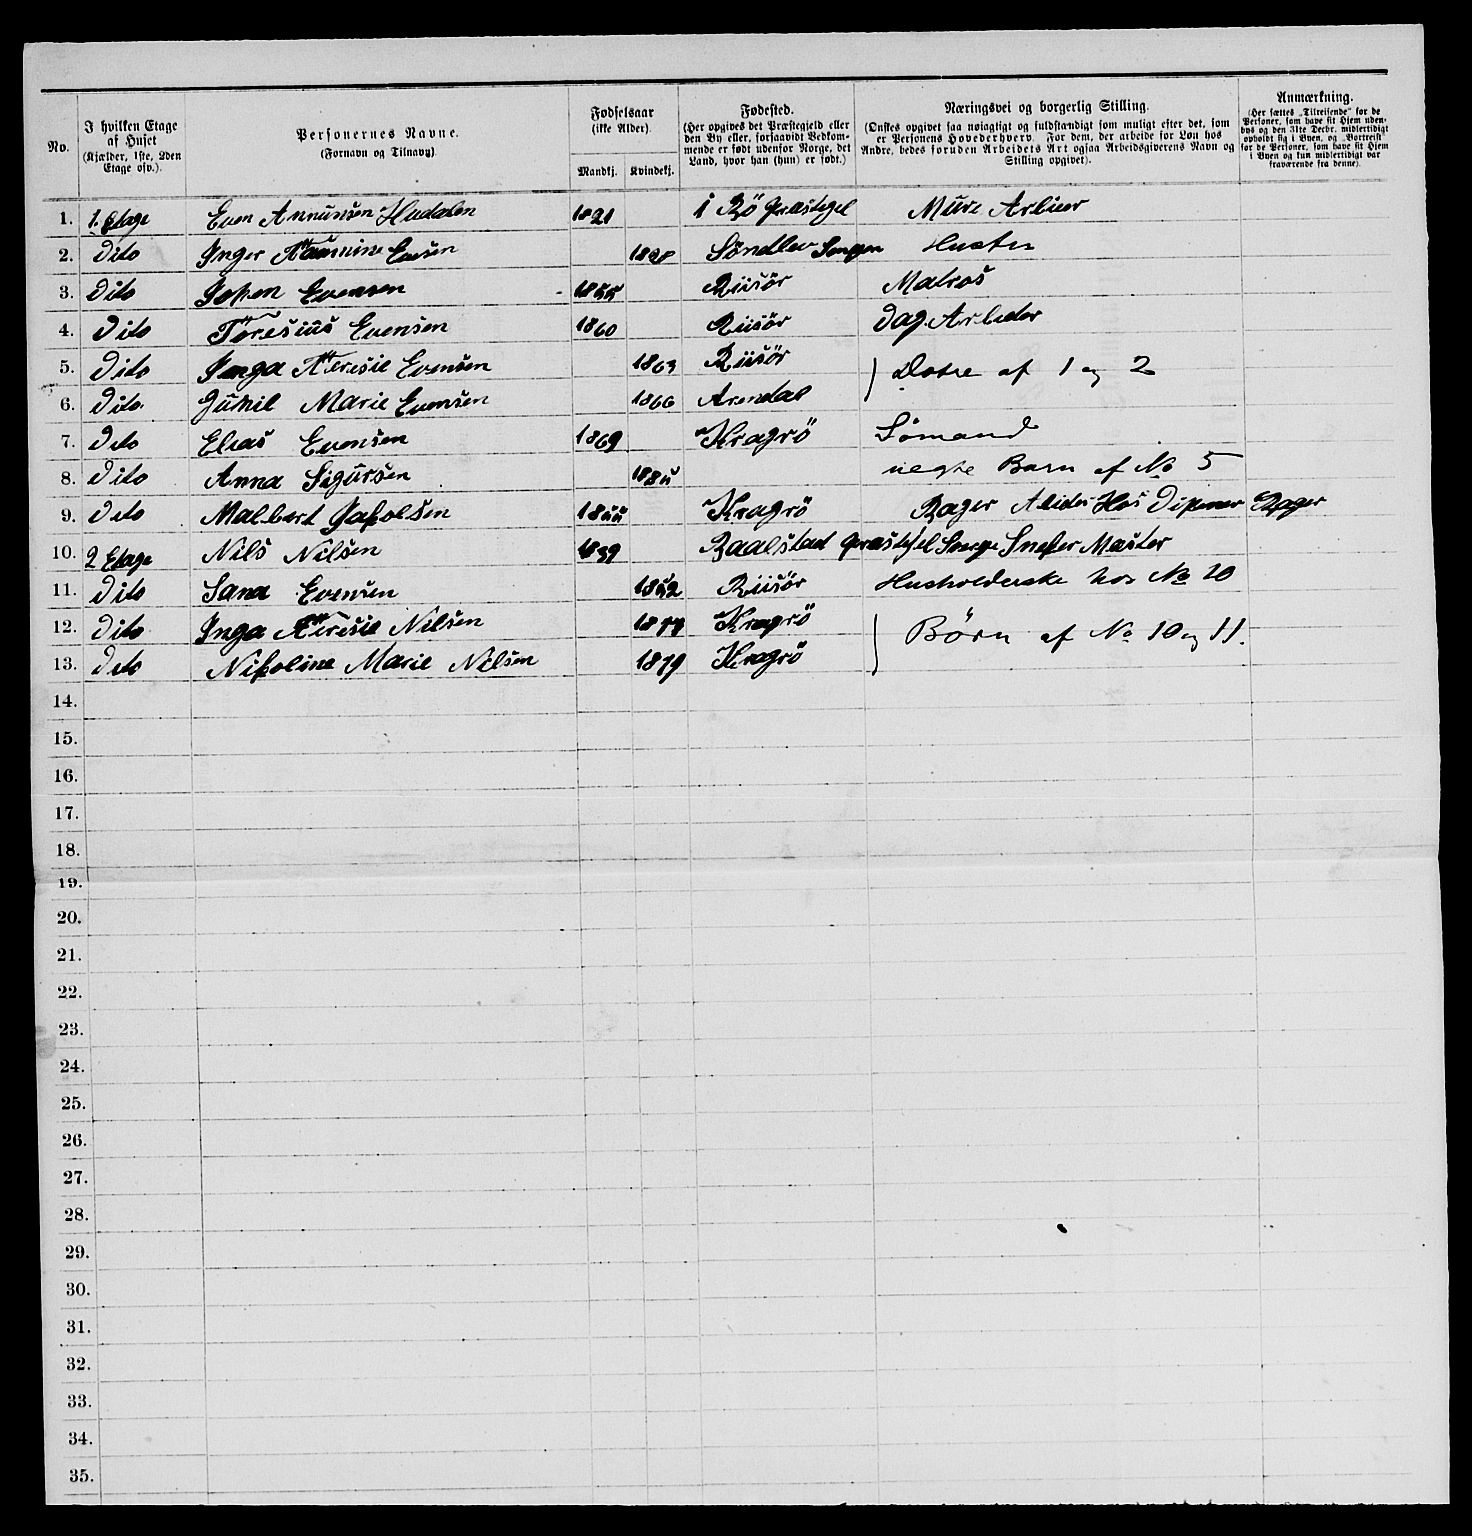 No.
I hvilken Etage af Huset (Kjælder, 1ste, 2den Etage osv.).
Personernes Navne. (Fornavn og Tilnavn).
Fødselsaar (ikke Alder).
Mandkj. Kvindekj.
Fødested. (Her opgives det Præstegjeld eller den By eller, forsaavidt Vedkommende er født udenfor Norge, det Land, hvor han (hun) er født.)
Næringsvei og borgerlig Stilling. (Ønskes opgivet saa nøiagtigt og fuldstændigt som muligt efter det, som er Personens Hovederhverv. For dem, der arbeide for Løn hos Andre, bedes foruden Arbeidets Art ogsaa Arbeidsgiverens Navn og Stilling opgivet).
Anmærkning. (Her sættes „Tilreisende“ for de Personer, som have sit Hjem udenbys og den 31te Decbr. midlertidigt opholdt sig i Byen, og „Bortreist“ for de Personer, som have sit Hjem i Byen og kun midlertidigt var fraværende fra denne).
1. 1. Etage Even Annunsen Hudalen 1821 i Bö Præstegel Mure Arbier
2. Dito Inger Evensen Söndlev Sougen Huster
3. Dito Evensen Riisör Matros
4. Dito Töresius Evensen 1860 Riisör Dag Arbider
5. Dito Inga Teresie Evensen 1863 Riisör } Døtre af 1 og 2
6. Dito Gunil Marie Evensen 1866 Arendal
7. Dito Elias Evensen 1869 Kragrö Sömand
8. Dito Anna Sigursen uegte Barn af No 5
9. Dito Malbert Jakolsen Kragrö Bager Abider Hos Bager
10. 2 Etage Nils Nilsen 1839 Sneker Mæster
11. Dito Sana Evensen 1852 Riisör Husholderske hos No 10
12. Dito Inga Teresie Nilsen 1877 Kragrö } Børn af No 10 og 11.
13. Dito Nikoline Marie Nilsen 1879 Kragrö
14.
15.
16.
17.
18.
19.
20.
21.
22.
23.
24.
25.
26.
27.
28.
29.
30.
31.
32.
33.
34.
35.